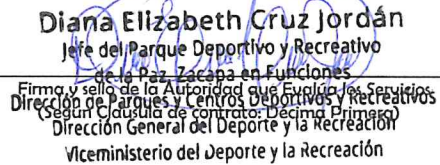 Diana Elizabeth Cruz Jordán
Jefe del Parque Deportivo y Recreativo
de la Paz, Zacapa en Funciones
Firma y sello de la Autoridad que Evalúa los Servicios
Dirección de Parques y Centros Deportivos y Recreativos
(Según Clausula de contrato: Décima Primera)
Dirección General del Deporte y la Recreación
Viceministerio del Deporte y la Recreación